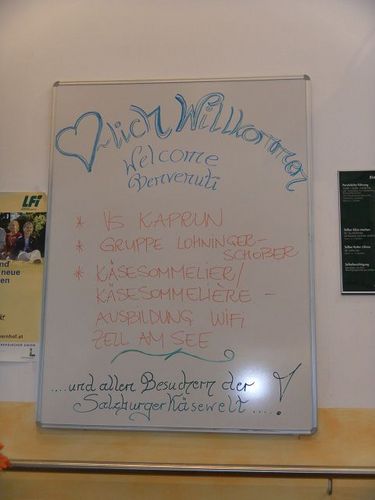 ♡lich Willkommen
Welcome
Benvenuti
* VS KAPRUN
* GRUPPE LOHNINGER-
SCHOBER
* KÄSESOMMELIER/
KÄSESOMMELIÈRE -
AUSBILDUNG WIFI
ZELL AM SEE
....und allen Besuchern der
Salzburger Käsewelt ....!
LFi
nd
neue
en